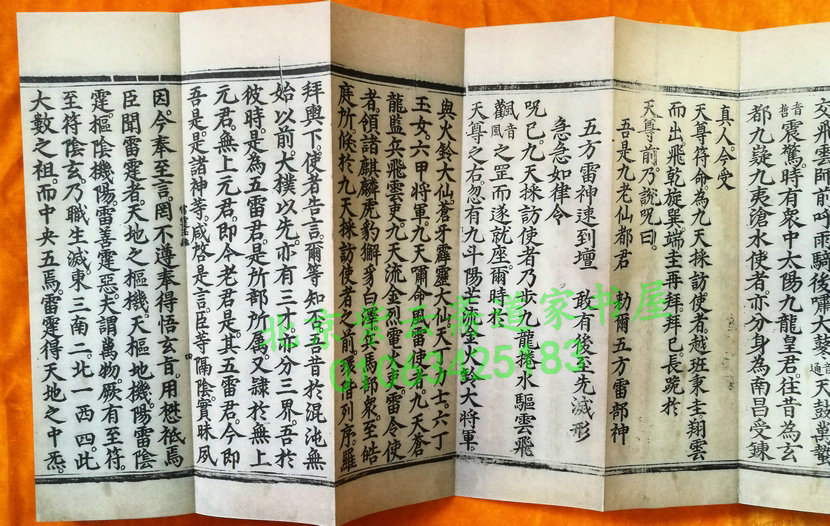 交飛雲師前呼雨騎後嘯大鼗音通天鼓萬蟄
哲音震驚。時有衆中太陽九龍皇君。往昔為玄
都九嶷九夷滄水使者。亦分身為南昌受鍊
真人。今受
天尊符命。為九天採訪使者。越班東圭。翔雲
而出。飛乾旋巽。端圭再拜。拜已。長跪於
天尊前。乃說呪曰。
吾是九老仙都君 勅爾五方雷部神
五方雷神速到壇 敢有後至先滅形
急急如律令
呪已。九天採訪使者。乃步九龍水驅雲飛
音風之罡。而遂就座。爾時
天尊之右。忽有九斗陽芒金火鈴大將軍。
與火鈴大仙。蒼牙霹靂大仙。天丁力士。六丁
玉女。六甲將軍。九天嘯命風雷使者。九天蒼
龍監兵飛雲吏。九天流金烈電大雷令使
者。領諸麒麟虎豹獬豸白馬部衆。至皓
庭所。候於九天採訪使者之前。皆列序。羅
拜輿下。使者告言。爾等知不。吾昔於混沌無
始以前。犬撲以先。亦有三才。亦分三界。吾於
彼時。是為五雷君。是所部所属。又隸於無上
元君。無上元君。即今老君。是其五雷君。今即
吾是。是諸神等。咸啓是言。臣等隔陰。實昧夙
因。今奉至言。罔不遵奉。得悟玄旨。用懋祗焉。
臣聞雷霆者。天地之樞機。天樞地機。陽雷陰
霆。樞陰機陽。雷善霆惡。夫謂萬物。厥有至符。
至符陰玄。乃職生滅。東三南二。北一西四。此
大數之祖。而中央五焉。雷霆得天地之中炁。
北京紫云斋道家书屋
01063425183